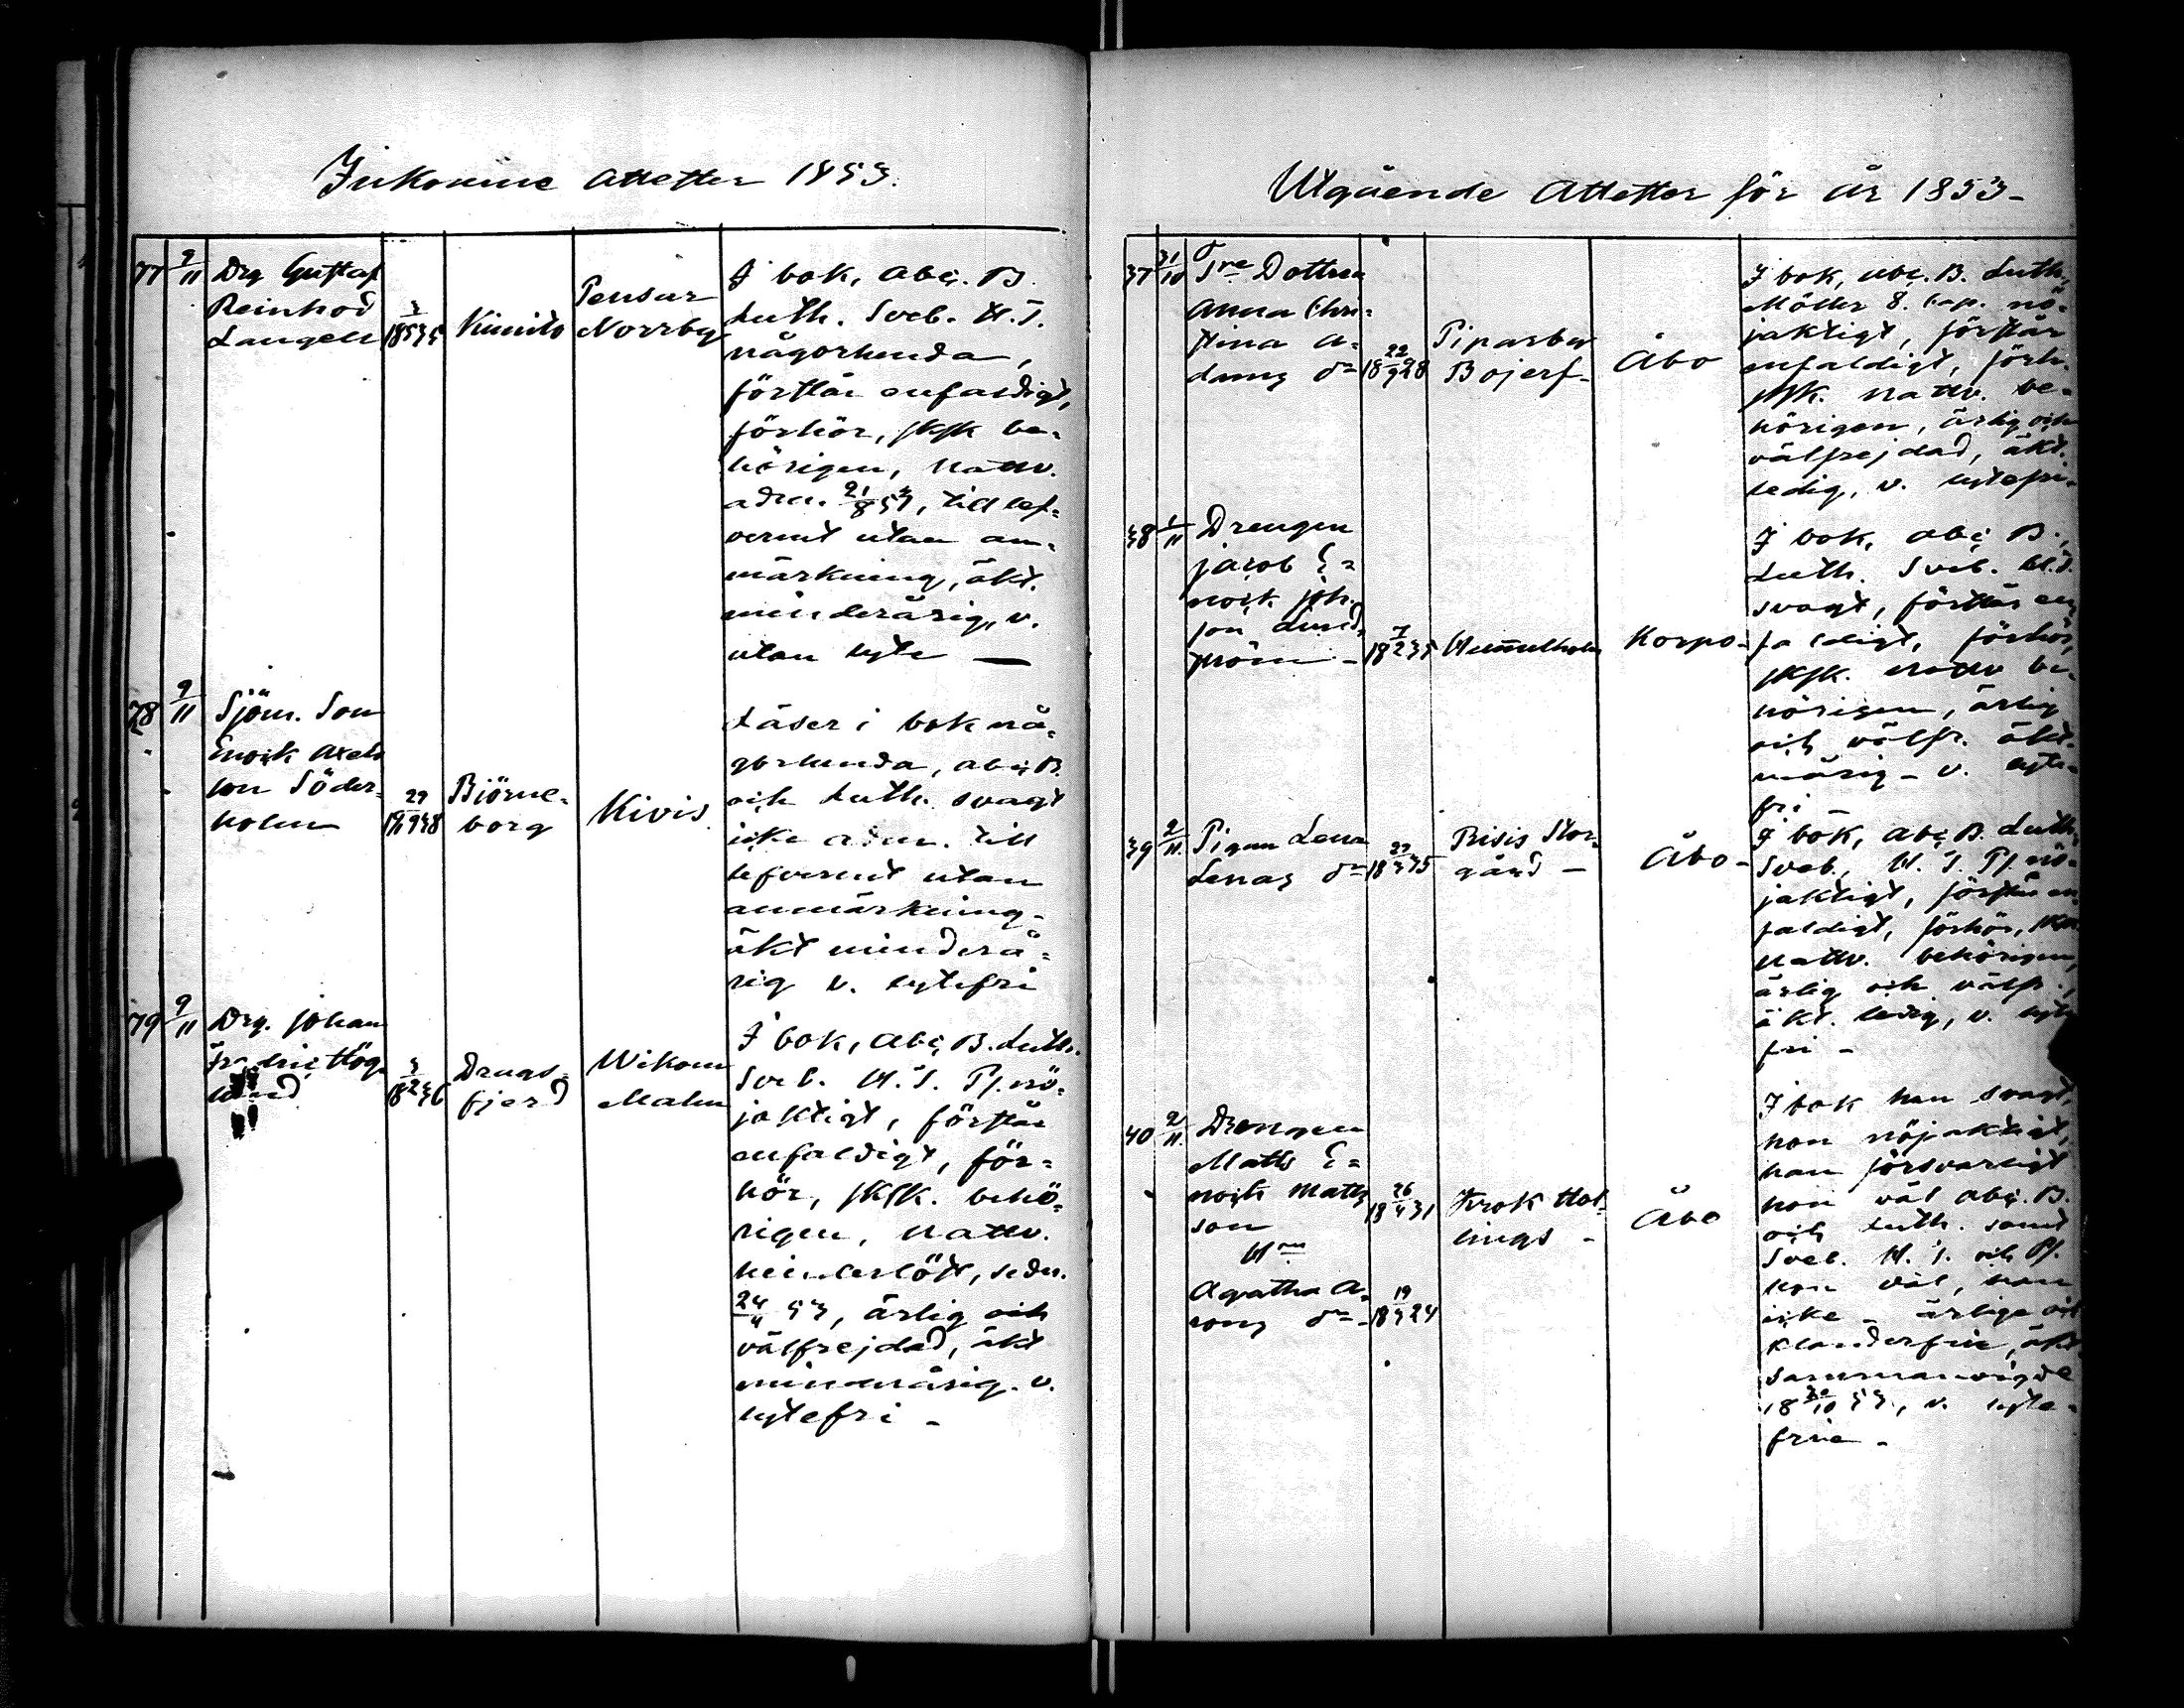 Inkomne attester 1853.
77 9/11 Drg Gustaf
Reinhod
Langell
Kimito
Pensar
Norrby
I bok, abc. B.
Luth. Sveb. H.T.
någorlunda,
förstår enfaldigt,
förhör, skrk be-
hörigen, nattv.
adm. 21/8 53, till lef-
vernet utan an-
märkning, äkt.
minderårig, v.
utan lyte —
78 9/11 Sjöm. Son
Enock Axels
son Söder-
holm
29/9 1848
Björne-
borg
Kivis
Läser i bok nå-
gorlunda, abc B.
och Luth. svagt
icke adm. till
lefvernet utan
anmärkning-
äkt minderå-
rig v. lytefri
79 9/11 Drg. Johan
Hög-
lund
Drags-
fjerd
Wikom
Malm
I bok, abc, B. Luth.
Sveb. H.T. Ps. nö-
jaktigt, förstår
enfaldigt, för-
hör, skrk. behö-
rigen, nattv.
sedn.
24/4 53, ärlig och
välfrejdad, äkt
minderårig. v.
lytefri -
Utgående Attester för år 1853-
37 31/10 Dottren
Anna Chri-
stina A-
dams dr
22/9 1828
Piparby
Bojers-
Åbo
I bok, abc. B. Luth.
Möller 8. cap. nö-
jaktigt, förstår
enfaldigt, förh.
skrk. nattv. be-
hörigen, ärlig och
välfrejdad, äkt.
ledig, v. lytefri-
38 1/11 Drengen
Jacob E-
nock Joh.
son Lind-
ström -
7/2 1835
Hummelholm
Korpo-
I bok, abc B.,
Luth. Sveb. H.T.
svagt, förstår en
faldigt, förhör,
skrk. nattv be-
hörigen, ärlig
och välfr. äkt.
märig - v. lyte-
fri -
39 2/11 Pigan Lena
Lenas dr
Prisis Stor-
gård -
Åbo-
I bok, abc B. Luth.
Sveb., H.T. Ps. nö-
jaktigt, förstår en
faldigt, förhör, skrk
nattv. behörigen,
ärlig och välfr.,
äkt. ledig, v. lyte
fri -
40 2/11 Drengen
Matts E-
nock Matts
son
26/4 1831
Hu
Agatha A-
rons dr-
19/3 1824
Krok Hol-
lings -
Åbo
I bok han svagt,
hon nöjaktigt,
han försvarligt
hon väl abc. B.
och Luth. samt
Sveb. H.T. och Ps.
hon väl, han
icke - ärliga och
klanderfrie, äkt
sammanvigde
18 30/10 53, v. lyte-
frie -